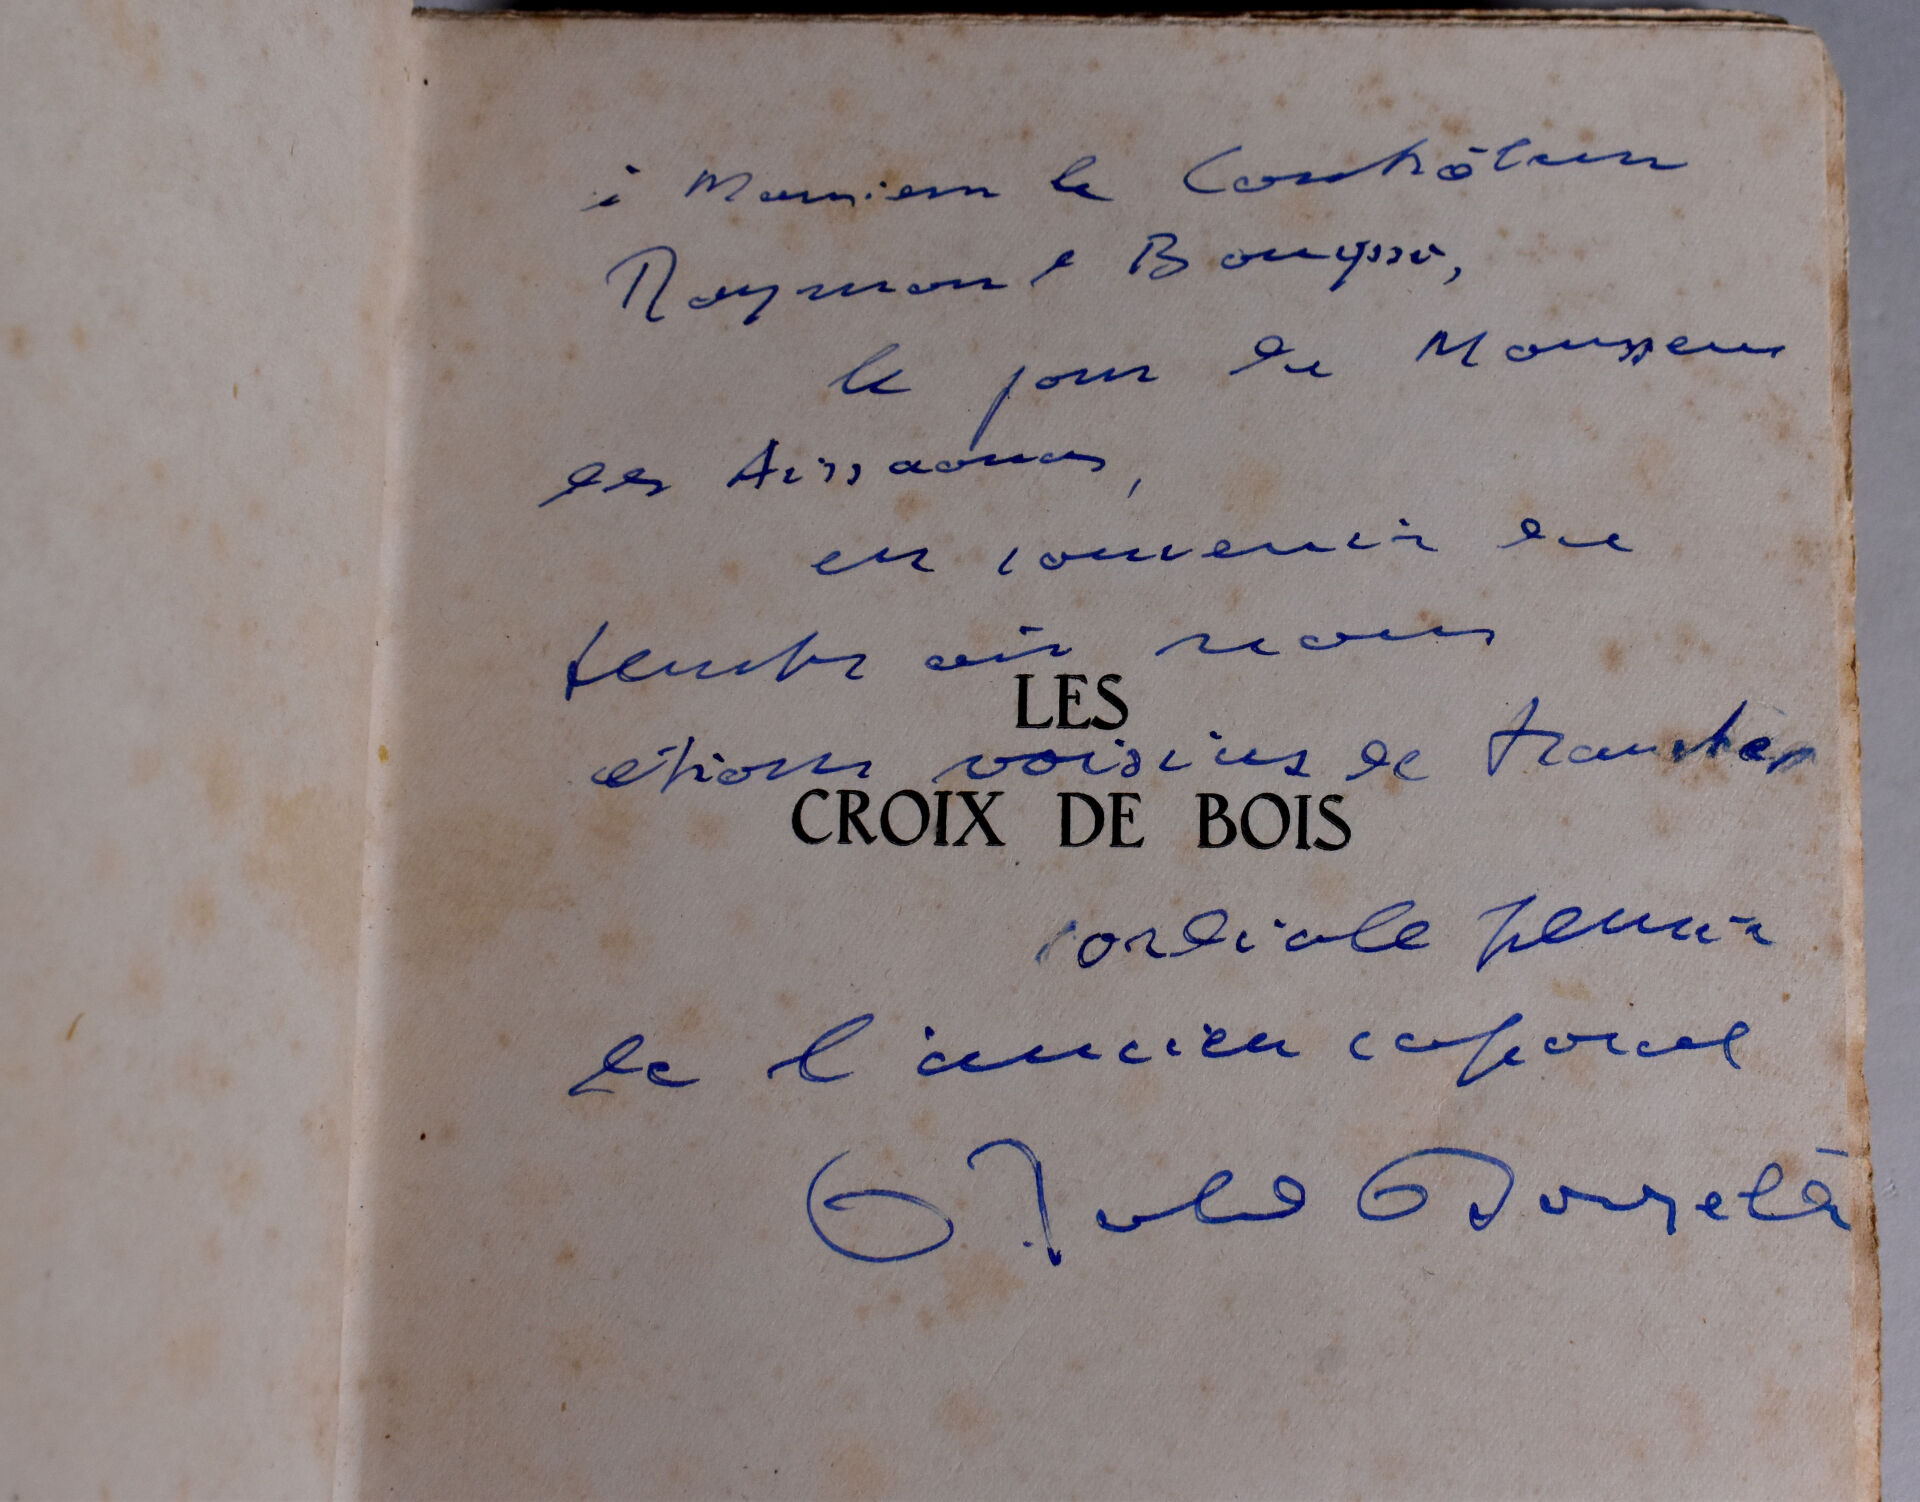 à Monsieur le Contrôleur
Raymond Bouyssi,
le jour du Moussem
des Aïssaouas,
en souvenir du
temps où nous
LES
étions voisins de tranchées
CROIX DE BOIS
cordiale pensée
de l'ancien caporal
Roland Dorgelès